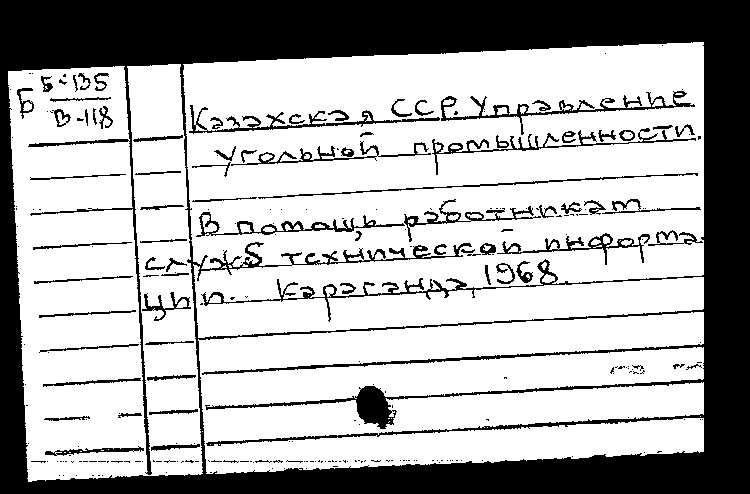 Б 5-135
В-118
Казахская ССР. Управление
угольной промышленности.
В помощь работникам
служб технической информа-
ции. Караганда, 1968.